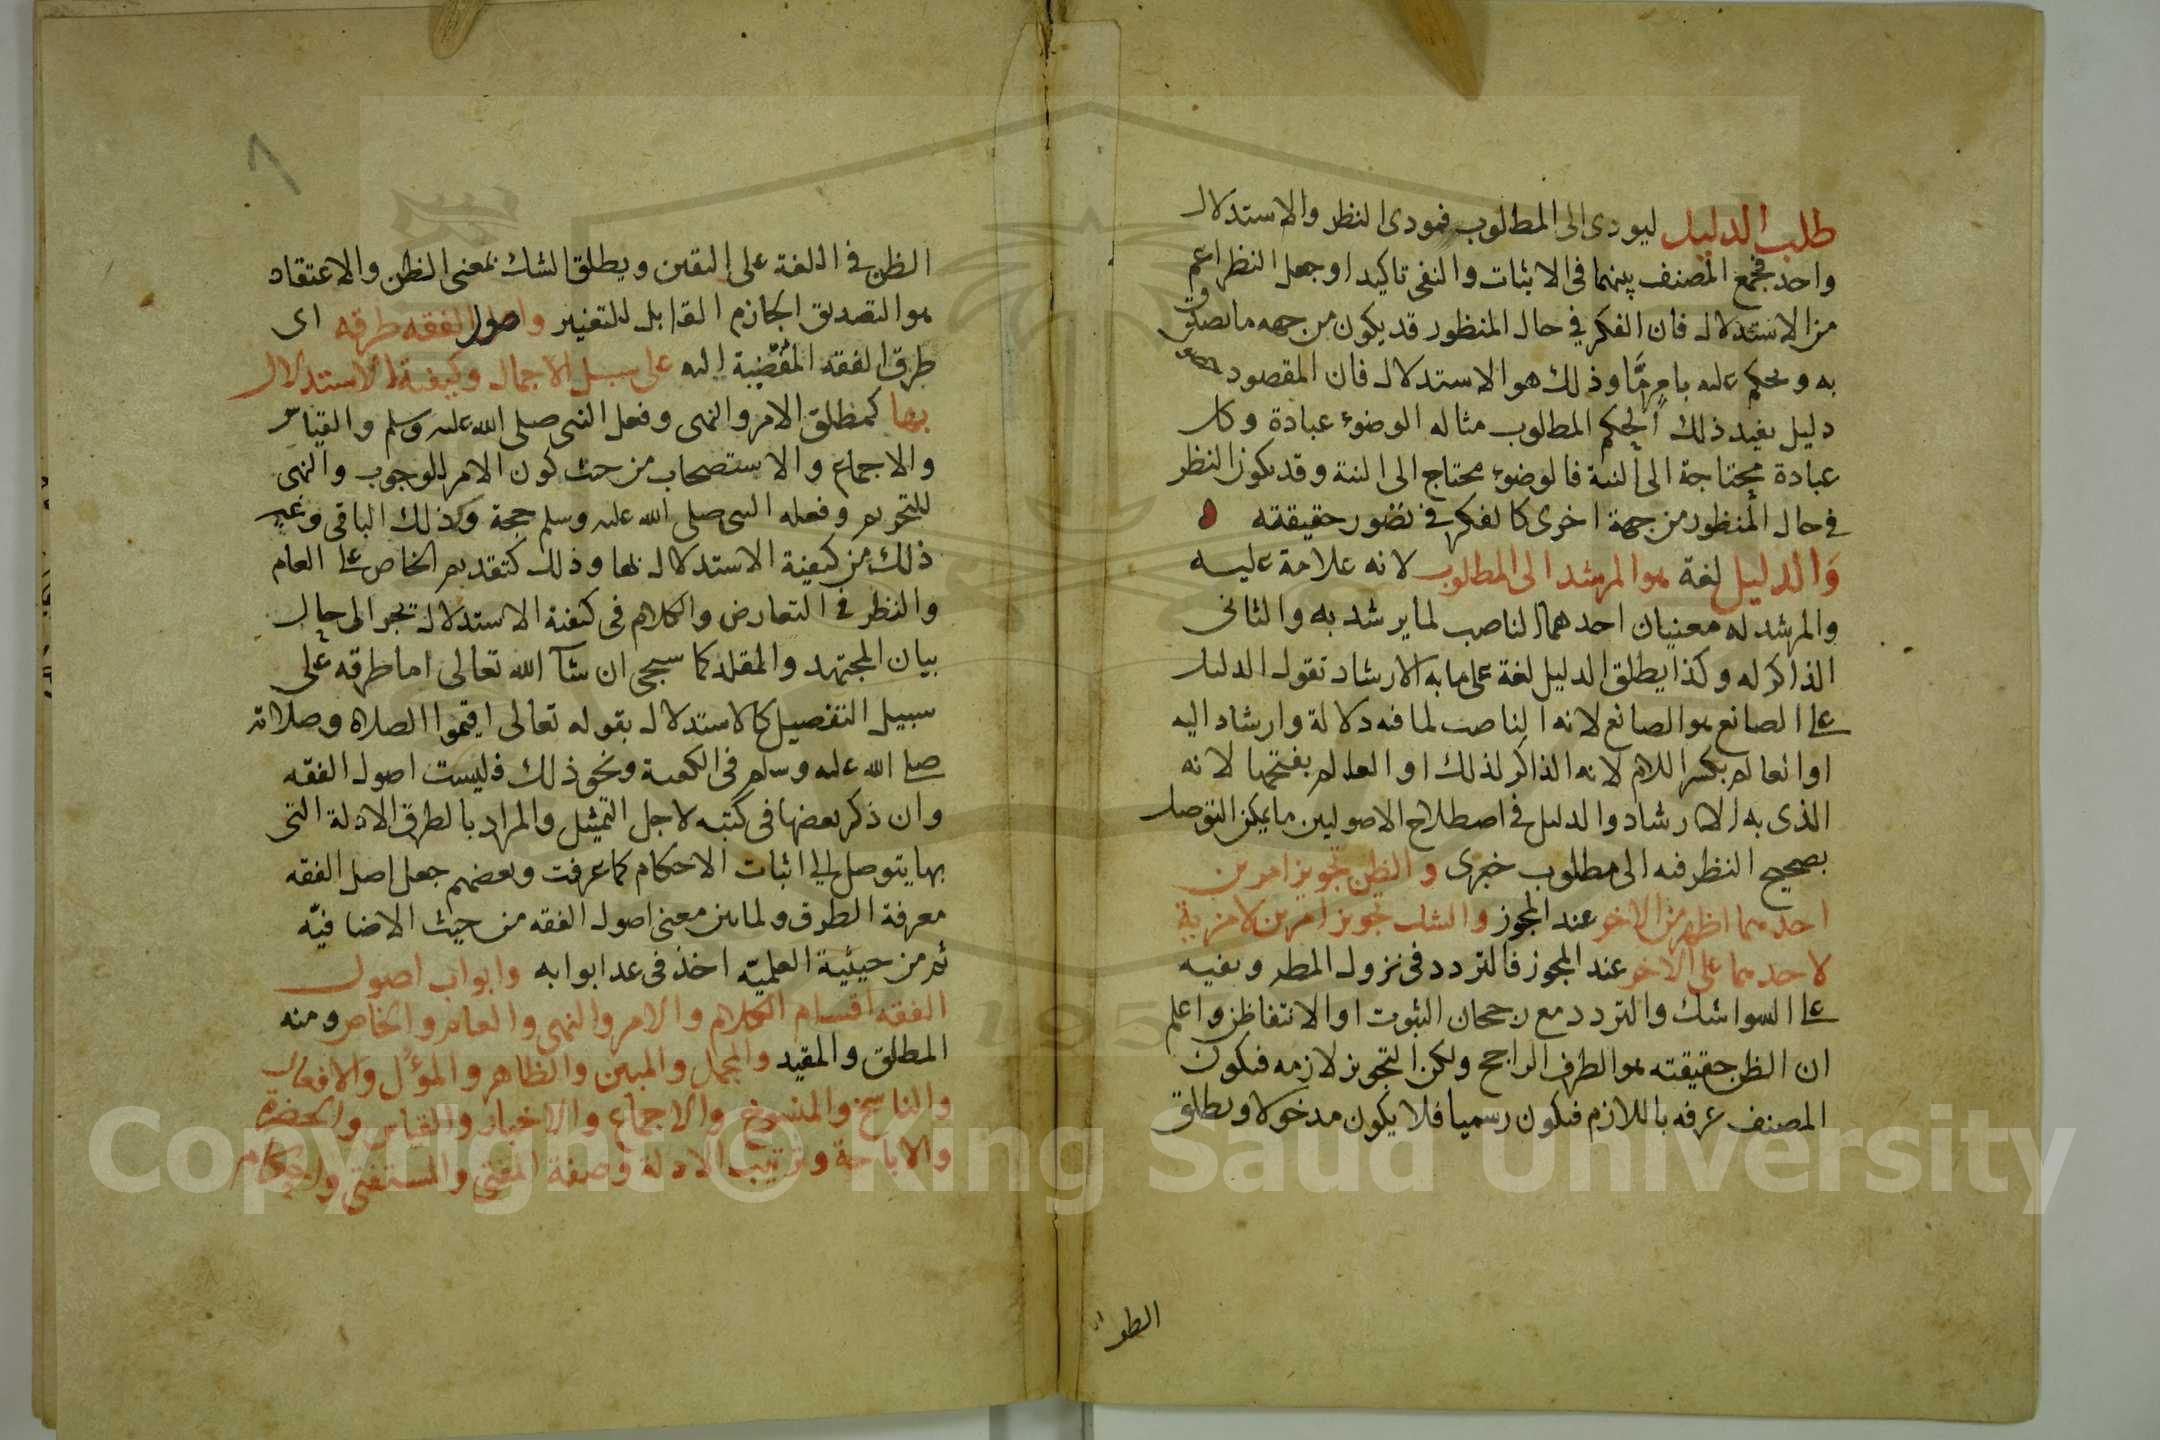 طلب الدليل ليودى الى المطلوب فمودى النظر والاستدلال
واحد فجمع المصنف بينهما فى الاثبات والنفى تاكيدا وجعل النظر اعم
من الاستدلال فان الفكر في حال المنظور قد يكون من جهه ما يصدق
به ويحكم عليه بامر ما وذلك هو الاستدلال فان المقصود
دليل يفيد ذلك الحكم المطلوب مثاله الوضوء عبادة وكل
عبادة محتاجة الى النية فالوضوء محتاج الى النية وقد يكون النظر
في حال المنظور من جهة اخرى كالفكر في تصور حقيقته
والدليل لغة هو المرشد الى المطلوب لانه علامة عليه
والمرشد له معنيان احدهما الناصب لما يرشد به والثانى
الذاكر له وكذا يطلق الدليل لغة على ما به الارشاد تقول الدليل
على الصانع هو الصانع لانه الناصب لما فيه دلالة وارشاد اليه
او العالم بكسر اللام لانه الذاكر لذلك او العالم بفتحها لانه
الذى به الارشاد والدليل في اصطلاح الاصوليين ما يمكن التوصل
بصحيح النظر فيه الى مطلوب خبرى والظن تجويز امرين
احدهما اظهر من الاخر عند المجوز والشك تجويز امرين لا مزية
لاحدهما على الاخر عند المجوز فالتردد فى نزول المطر ونفيه
على السوا شك والتردد مع رجحان الثبوت او الانتفا ظن واعلم
ان الظن حقيقته هو الطرف الراجح ولكن التجويز لازمه فيكون
المصنف عرفه باللازم فيكون رسميا فلا يكون مدخولا ويطلق
الظن في اللغة على اليقين ويطلق الشك بمعنى الظن والاعتقاد
هو التصديق الجازم القابل للتغيير واصول الفقه طرقه اى
طرق الفقه المفضية اليه على سبيل الاجمال وكيفية الاستدلال
بها كمطلق الامر والنهى وفعل النبى صلى الله عليه وسلم والقياس
والاجماع والاستصحاب من حيث كون الامر للوجوب والنهى
للتحريم وفعله النبى صلى الله عليه وسلم حجة وكذلك الباقى وغير
ذلك من كيفية الاستدلال بها وذلك كتقديم الخاص على العام
والنظر في التعارض والكلام فى كيفية الاستدلال يجر الى حال
بيان المجتهد والمقلد كما سيجى ان شآ الله تعالى اما طرقه على
سبيل التفصيل كالاستدلال بقوله تعالى اقيموا الصلاه وصلاته
صلى الله عليه وسلم فى الكعبة ونحو ذلك فليست اصول الفقه
وان ذكر بعضها فى كتبه لاجل التمثيل والمراد بالطرق الادلة التى
بها يتوصل الى اثبات الاحكام كما عرفت وبعضهم جعل اصل الفقه
معرفة الطرق ولما بين معنى اصول الفقه من حيث الاضافيّه
ثم من حيثية العلميّه اخذ فى عد ابوابه وابواب اصول
الفقه اقسام الكلام والامر والنهى والعام والخاص ومنه
المطلق والمقيد والمجمل والمبين والظاهر والمؤل والافعال
والناسخ والمنسوخ والاجماع والاخبار والقياس والحضر
والاباحة وترتيب الادلة وصفة المفتى والمستفتى واحكام